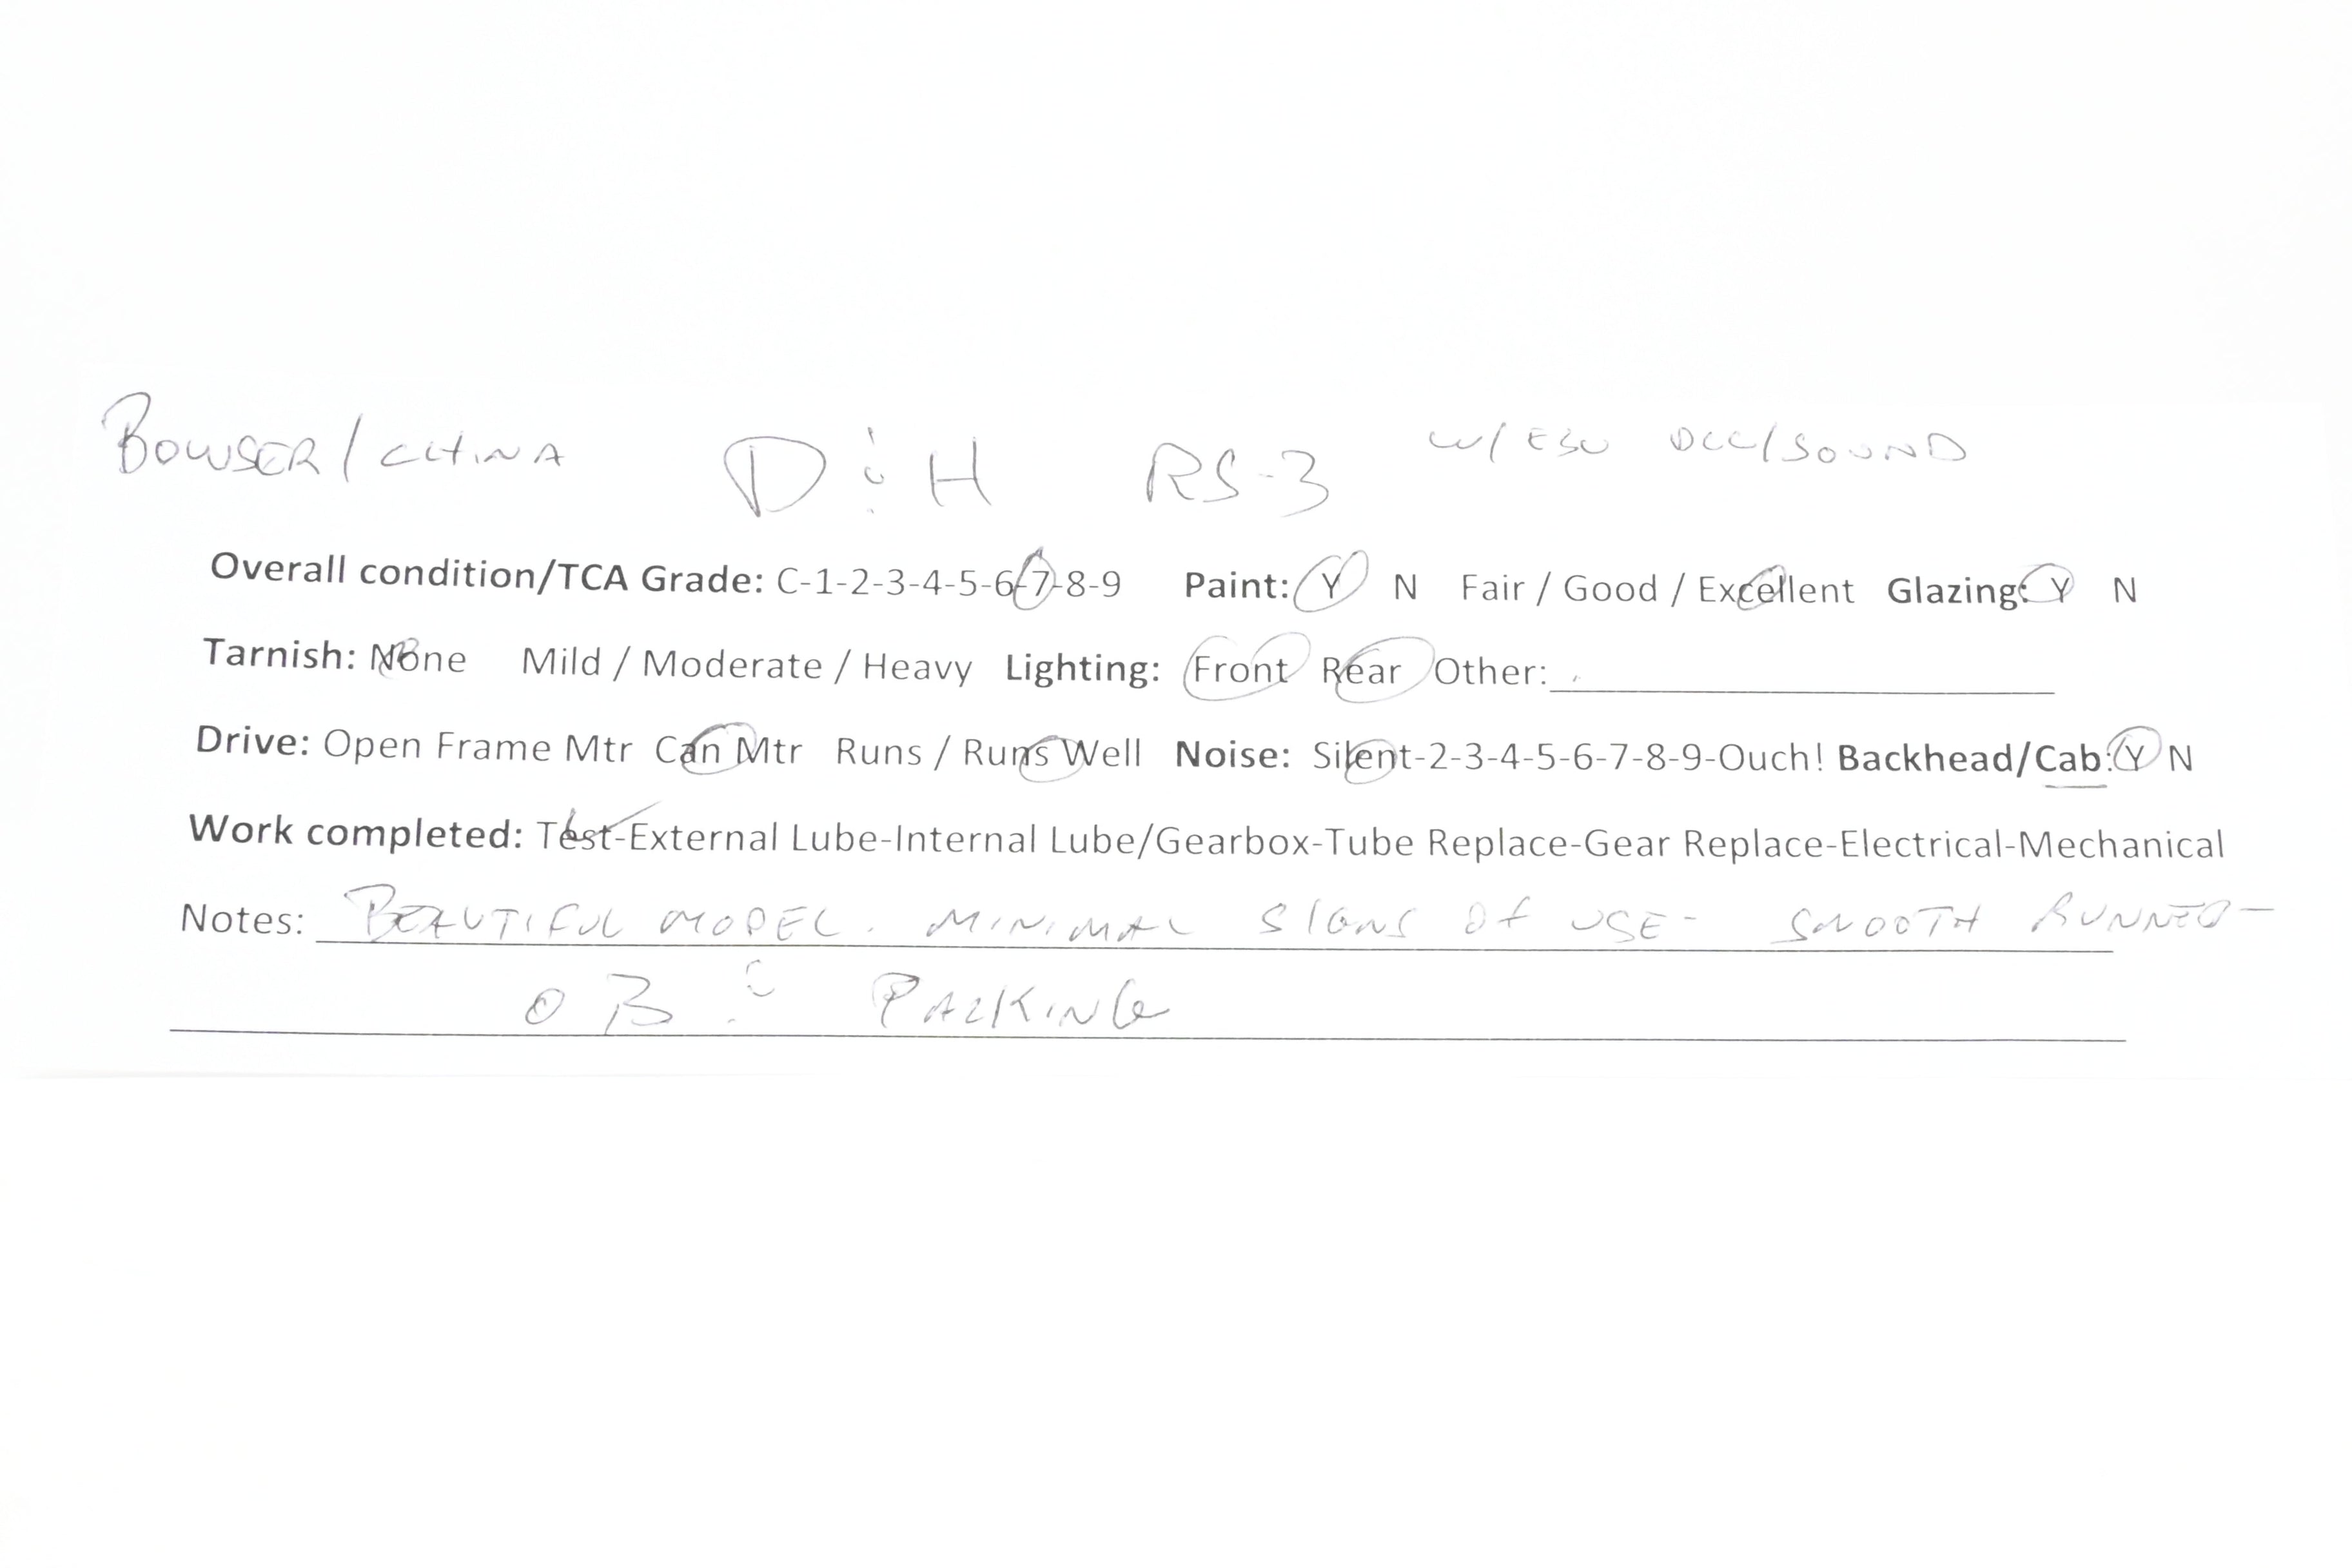 BOWSER/CHINA D & H RS-3 W/ ESU DCC/SOUND
Overall condition/TCA Grade: C-1-2-3-4-5-6-7-8-9 Paint: Y N Fair / Good / Excellent Glazing: Y N
Tarnish: None Mild / Moderate / Heavy Lighting: Front Rear Other:
Drive: Open Frame Mtr Can Mtr Runs / Runs Well Noise: Silent-2-3-4-5-6-7-8-9-Ouch! Backhead/Cab: Y N
Work completed: Test-External Lube-Internal Lube/Gearbox-Tube Replace-Gear Replace-Electrical-Mechanical
Notes: BEAUTIFUL MODEL. MINIMAL SIGNS OF USE- SMOOTH RUNNER-
OB & PACKING